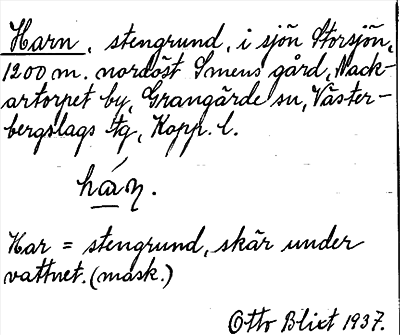 Harn, stengrund, i sjön Storsjön,
1200 m. nordöst Smens gård, Nack-
artorpet by, Grangärde sn, Väster-
bergslags tg, Kopp. l.
há̱ṇ.
Har = stengrund, skär under
vattnet. (mask.)
Otto Blixt 1937.